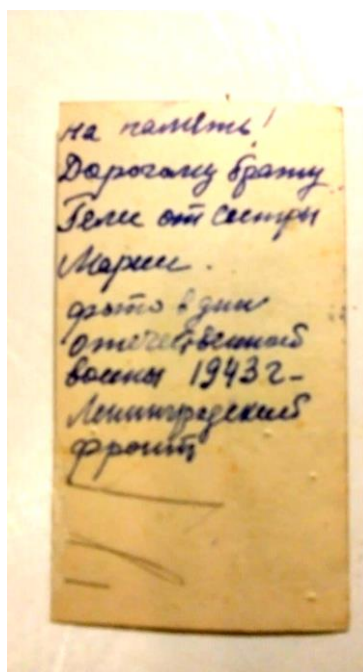 на память!
Дорогому брату
Геле от сестры
Марии.
фото в дни
отечественной
войны 1943 г-
Ленинградский
фронт